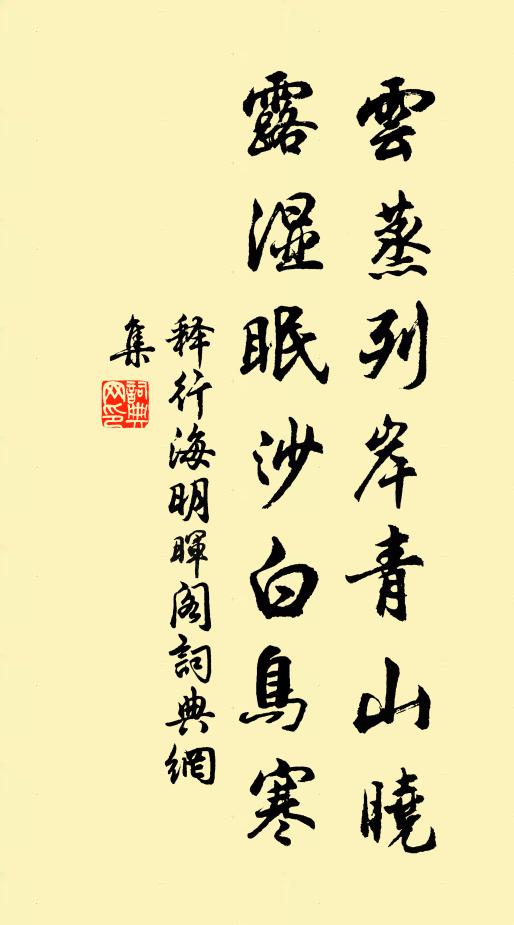 雲蒸列岸青山曉
露湿眠沙白鳥寒
释行海明暉阁詞典網
集
詞典網印